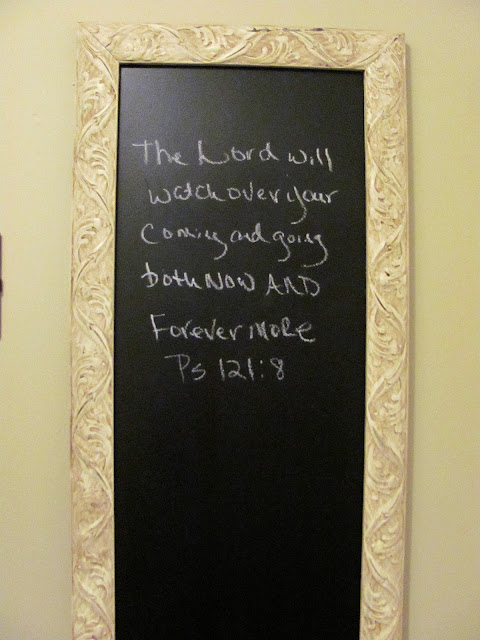 The Lord will
watch over your
coming and going
both NOW AND
Forevermore
Ps 121:8